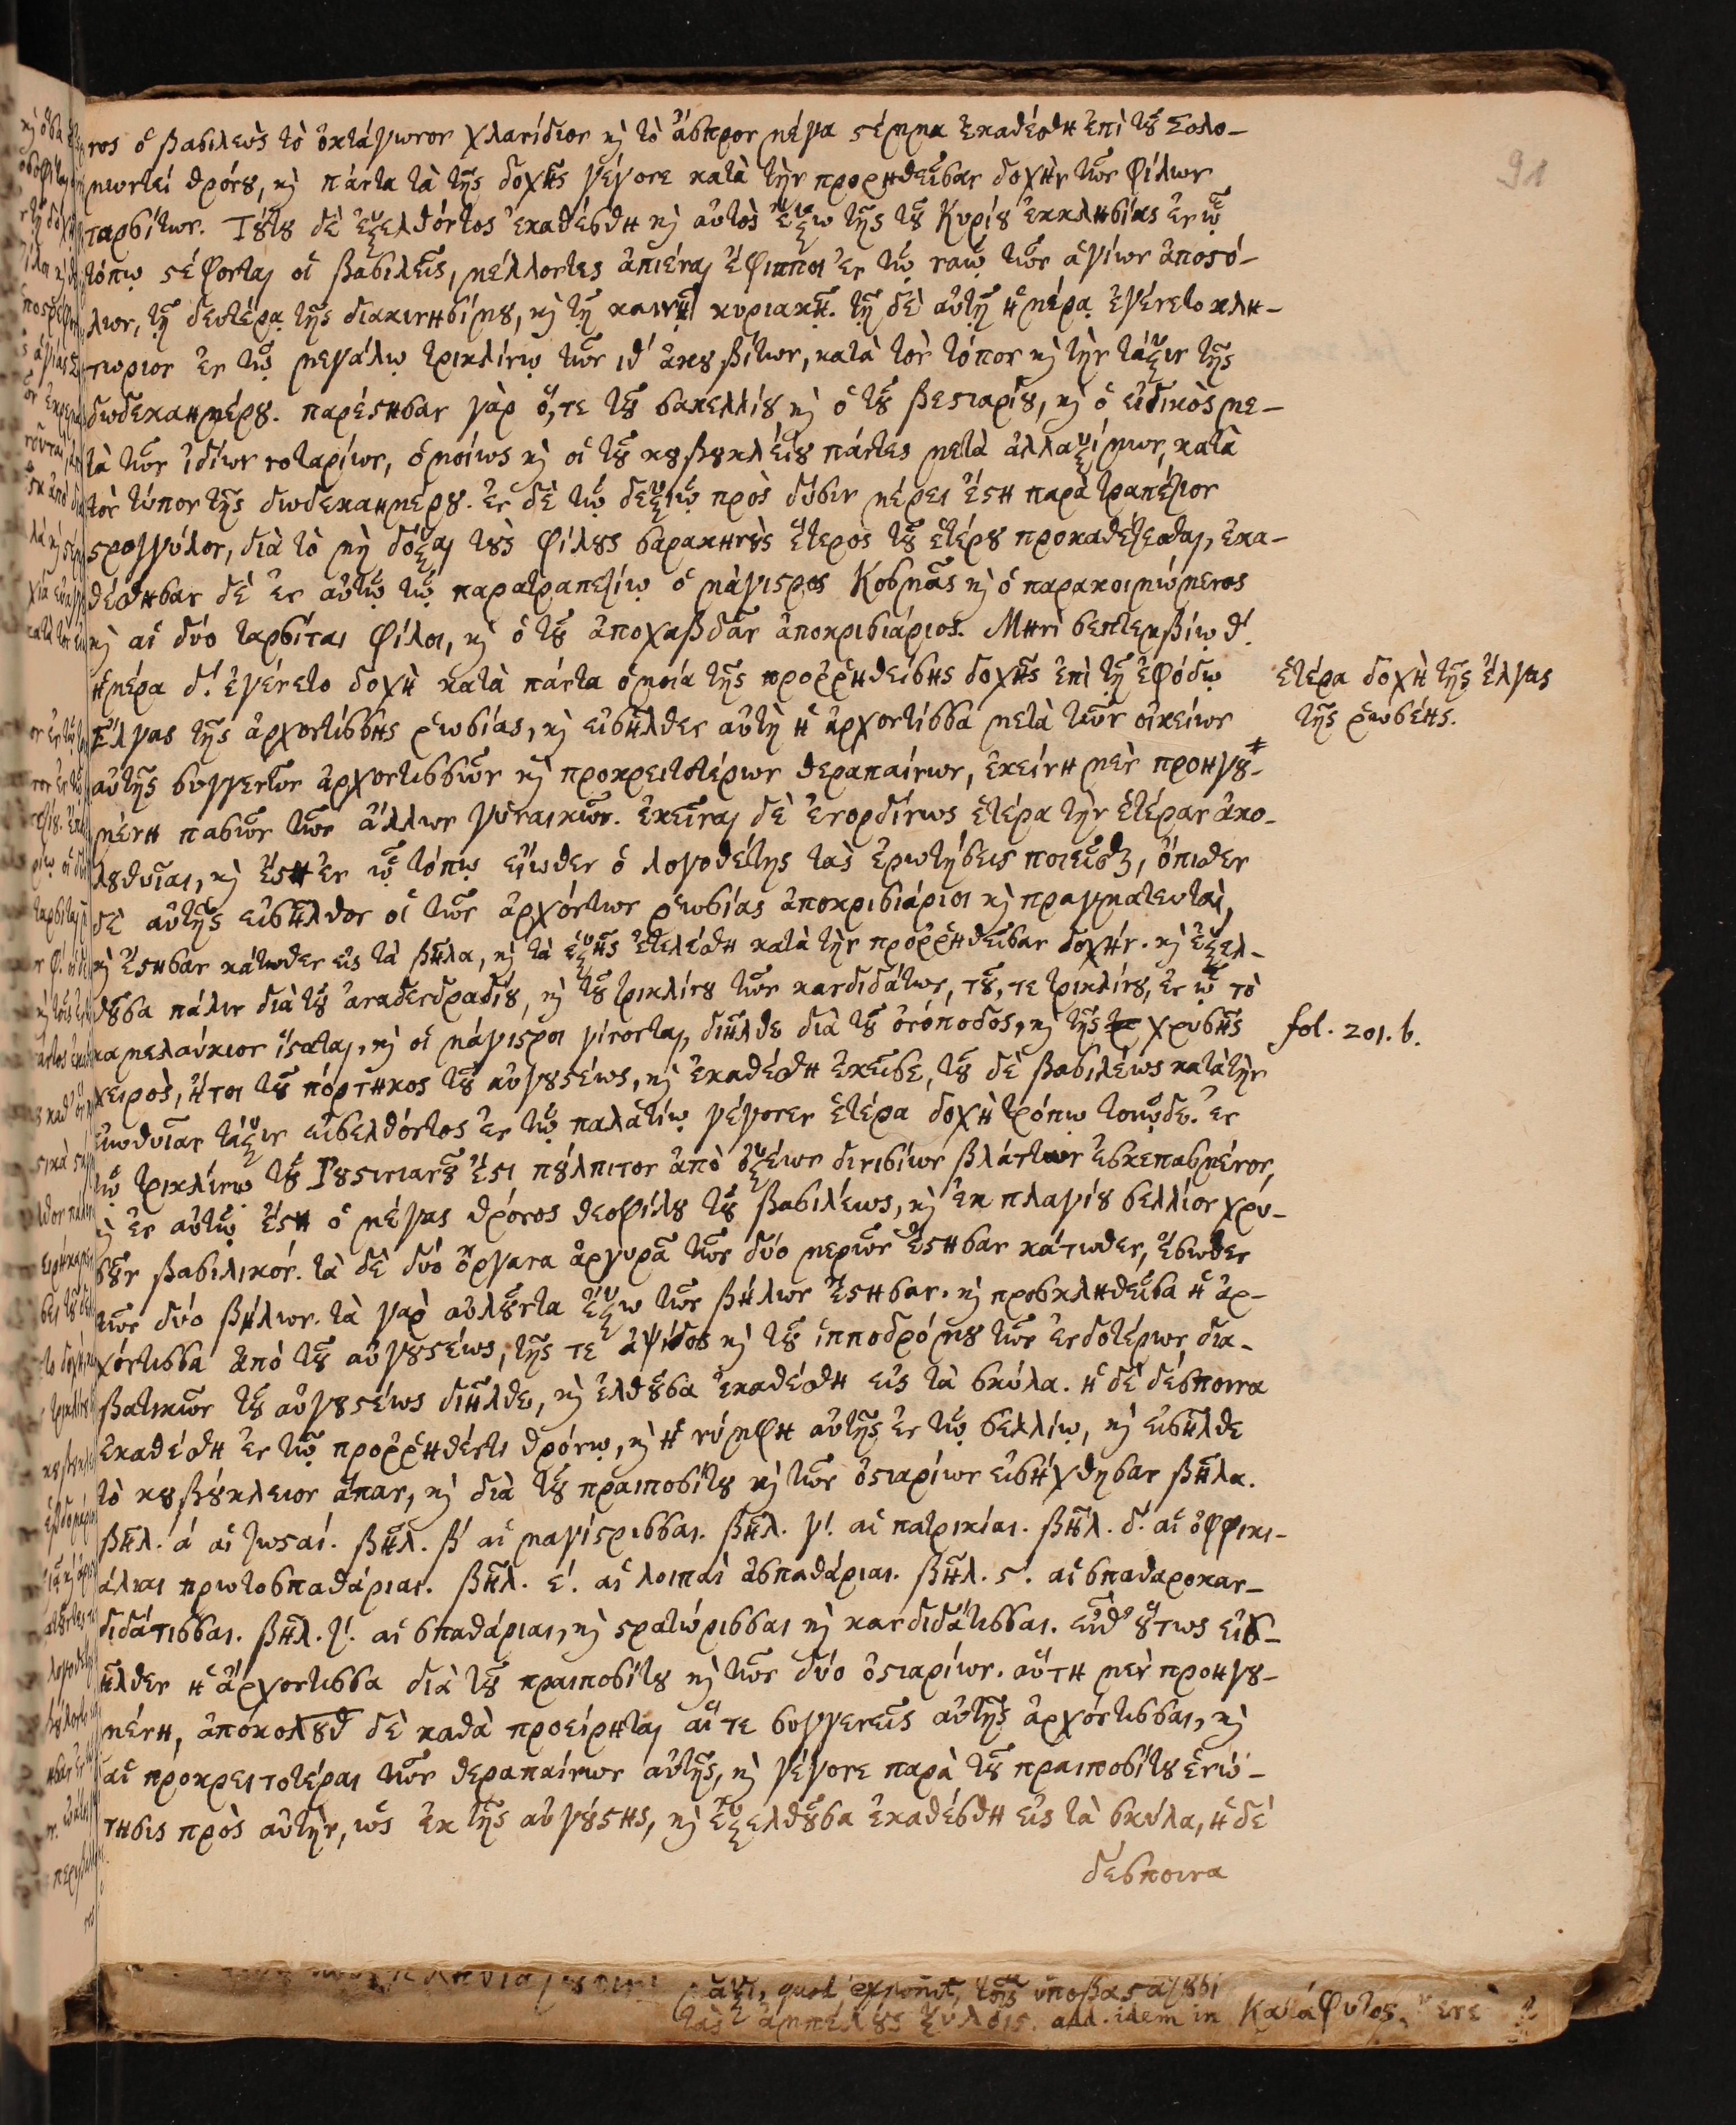 νος ὁ βασιλεὺς τὸ ὀκτάγωνον χλανίδιον κὶ τὸ ἄσπρον μέγα στέμμα ἐκαθέσθη ἐπὶ τοῦ Σολο-
μωντεί θρόνου, κὶ πάντα τὰ τῆς δοχῆς γέγονε κατὰ τὴν προρηθεῖσαν δοχὴν τῶν φίλων
ταρσίτων. Τούτου δὲ ἐξελθόντος ἐκαθέσθη κὶ αὐτὸς ἔξω τῆς τοῦ Κυρίου ἐκκλησίας ἐν ᾧ
τόπῳ στέφονται οἱ βασιλεῖς, μέλλοντες ἀπιέναι ἔφιπποι ἐν τῷ ναῷ τῶν ἁγίων ἀποστό-
λων, τῇ δευτέρᾳ τῆς διακινησίμου, κὶ τῇ καινῇ κυριακῇ. τῇ δὲ αὐτῇ ἡμέρᾳ ἐγένετο κλη-
τωριον ἐν τῷ μεγάλῳ τρικλίνῳ τῶν ιθ´ ἀκουβίτων, κατὰ τὸν τόπον κὶ τὴν τάξιν τῆς
δωδεκαημέρου. παρέστησαν γὰρ ὅ, τε τοῦ σακελλίου κὶ ὁ τοῦ βεστιαρίου, κὶ ὁ εἰδικὸς με-
τὰ τῶν ἰδίων νοταρίων, ὁμοίως κὶ οἱ τοῦ κουβουκλείου πάντες μετὰ ἀλλαξίμων, κατὰ
τὸν τύπον τῆς δωδεκαημέρου. ἐν δὲ τῷ δεξιῷ πρὸς δύσιν μέρει ἔστη παρὰ τραπέζιον
στρογγύλον, διὰ τὸ μὴ δόξαι τοὺς φίλους σαρακηνοὺς ἕτερος τοῦ ἑτέρου προκαθέζεσθαι, ἐκα-
θέσθησαν δὲ ἐν αὐτῷ τῷ παρατραπεζίῳ ὁ μάγιστρος Κοσμᾶς κὶ ὁ παρακοιμώμενος
κὶ αἱ δύο ταρσίται φίλοι, κὶ ὁ τοῦ ἀποχαβδᾶν ἀποκρισιάριος. Μηνὶ σεπτεμβίῳ θ´.
ἡμέρα δ´. ἐγένετο δοχὴ κατὰ πάντα ὁμοία τῆς προῤῥηθείσης δοχῆς ἐπὶ τῇ ἐφόδῳ
Ἔλγας τῆς ἀρχοντίσσης ῥωσίας, κὶ εἰσῆλθεν αὐτὴ ἡ ἀρχοντίσσα μετὰ τῶν οἰκείων
αὐτῆς συγγενῶν ἀρχοντισσῶν κὶ προκρειττοτέρων θεραπαίνων, ἐκείνη μὲν προηγου-
μένη πασῶν τῶν ἄλλων γυναικῶν. ἐκεῖναι δὲ ἐνορδίνως ἑτέρα τὴν ἑτέραν ἀκο-
λουθοῦσαι, κὶ ἔστη ἐν ᾧ τόπῳ εἴωθεν ὁ λογοθέτης τὰς ἐρωτήσεις ποιεῖσθαι, ὄπισθεν
δὲ αὐτῆς εἰσῆλθον οἱ τῶν ἀρχόντων ῥωσίας ἀποκρισιάριοι κὶ πραγματευταὶ,
κὶ ἔστησαν κάτωθεν εἰς τὰ βῆλα, κὶ τὰ ἑξῆς ἐτελέσθη κατὰ τὴν προῤῥηθεῖσαν δοχήν. κὶ ἐξελ-
θοῦσα πάλιν διὰ τοῦ ἀναδενδραδίου, κὶ τοῦ τρικλίνου τῶν κανδιδάτων, τοῦ, τε τρικλίνου, ἐν ᾧ τὸ
καμελαύκιον ἵσταται, κὶ οἱ μάγιστροι γίνονται, διῆλθε διὰ τοῦ ὀνόποδος, κὶ τῆς χρυσῆς
χειρὸς, ἤτοι τοῦ πόρτηκος τοῦ αὐγουστέως, κὶ ἐκαθέσθη ἐκεῖσε, τοῦ δὲ βασιλέως κατὰ τὴν
εἰωθυῖαν τάξιν εἰσελθόντος ἐν τῷ παλατίῳ γέγονεν ἑτέρα δοχὴ τρόπῳ τοιῷδε. ἐν
τῷ τρικλίνῳ τοῦ Ἰουστινιανοῦ ἔστη πούλπιτον ἀπὸ ὀξέων διβισίων βλάττων ἐσκεπασμένον,
κὶ ἐν αὐτῷ ἔστη ὁ μέγας θρόνος θεοφίλου τοῦ βασιλέως, κὶ ἐκ πλαγίου σελλίον χρυ-
σοῦν βασιλικόν. τὰ δὲ δύο ὄργανα ἀργυρᾶ τῶν δύο μερῶν ἔστησαν κάτωθεν, ἔσωθεν
τῶν δύο βήλων. τὰ γὰρ αὐλοῦντα ἔξω τῶν βήλων ἔστησαν. κὶ προσκληθεῖσα ἡ ἀρ-
χόντισσα ἀπὸ τοῦ αὐγουστέως, τῆς τε ἀψίδος κὶ τοῦ ἱπποδρόμου τῶν ἐνδοτέρων, δια-
βατικῶν τοῦ αὐγουστέως διῆλθε, κὶ ἐλθοῦσα ἐκαθέσθη εἰς τὰ σκύλα. ἡ δὲ δέσποινα
ἐκαθέσθη ἐν τῷ προῤῥηθέντι θρόνῳ, κὶ ἡ νύμφη αὐτῆς ἐν τῷ σελλίῳ, κὶ εἰσῆλθε
τὸ κουβούκλειον ἅπαν, κὶ διὰ τοῦ πραιποσίτου κὶ τῶν ὀστιαρίων εἰσήχθησαν βῆλα.
βῆλ. ά αἱ ζωσταί. βῆλ. β´ αἱ μαγίστρισσαι. βῆλ. γ´. αἱ πατρικίαι. βῆλ. δ´. αἱ ὀφφικι-
άλιαι πρωτοσπαθάριαι. βῆλ. ε´. αἱ λοιπαὶ ἀσπαθάριαι. βῆλ. ς´. αἱ σπαθαροκαν-
διδάτισσαι. βῆλ. ζ´. αἱ σπαθάριαι, κὶ στρατώρισσαι κὶ κανδιδάτισσαι. εἶθ᾽ οὕτως εἰσ-
ῆλθεν ἡ ἀρχοντισσα διὰ τοῦ πραιποσίτου κὶ τῶν δύο ὀστιαρίων. αὕτη μὲν προηγου-
μένη, ἀπόκολουθ δὲ καθὰ προείρηται αἵ τε συγγενεῖς αὐτῆς ἀρχόντισσαι, κὶ
αἱ προκρειτοτέραι τῶν θεραπαίνων αὐτῆς, κὶ γέγονε παρὰ τοῦ πραιποσίτου ἐρώ-
τησις πρὸς αὐτὴν, ὡς ἐκ τῆς αὐγούστης, κὶ ἐξελθοῦσα ἐκαθέσθη εἰς τὰ σκύλα, ἡ δὲ
δέσποινα
ἑτέρα δοχὴ τῆς Ἔλγας
τῆς ῥωσένης.
fol. 201. b.
91
quod exponit, τοῖς
τὰς ἀμπέλους ξύλοις. add. idem in Κατάφυτος.